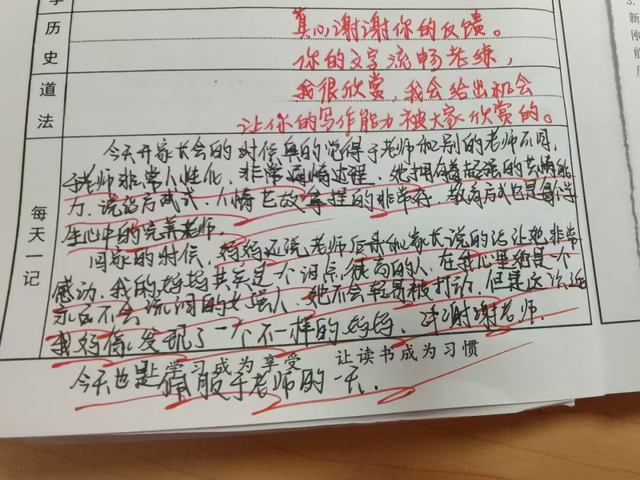 真心谢谢你的反馈。
历史
你的文字流畅老练，
我很欣赏，我会给出机会
道法
让你的写作能力被大家欣赏的。
今天开家长会的时候真的觉得于老师和别的老师不同，
于老师非常人性化、非常 过程、她拥有着超强的共情能
力、说话方式、人情世故拿捏的非常好、教育方式也是
每天一记
生心中的完美老师。
回家的时候、妈妈还说老师后来和家长说的话让她非常
感动、我的妈妈其实是一个泪点很高的人、在我心里她是一个
永远不会流泪的女强人、她不会轻易被打动、但是这次
我 发现了一个不一样的妈妈、 谢谢老师
让学习成为享受 让读书成为习惯
今天也是佩服于老师的一天、